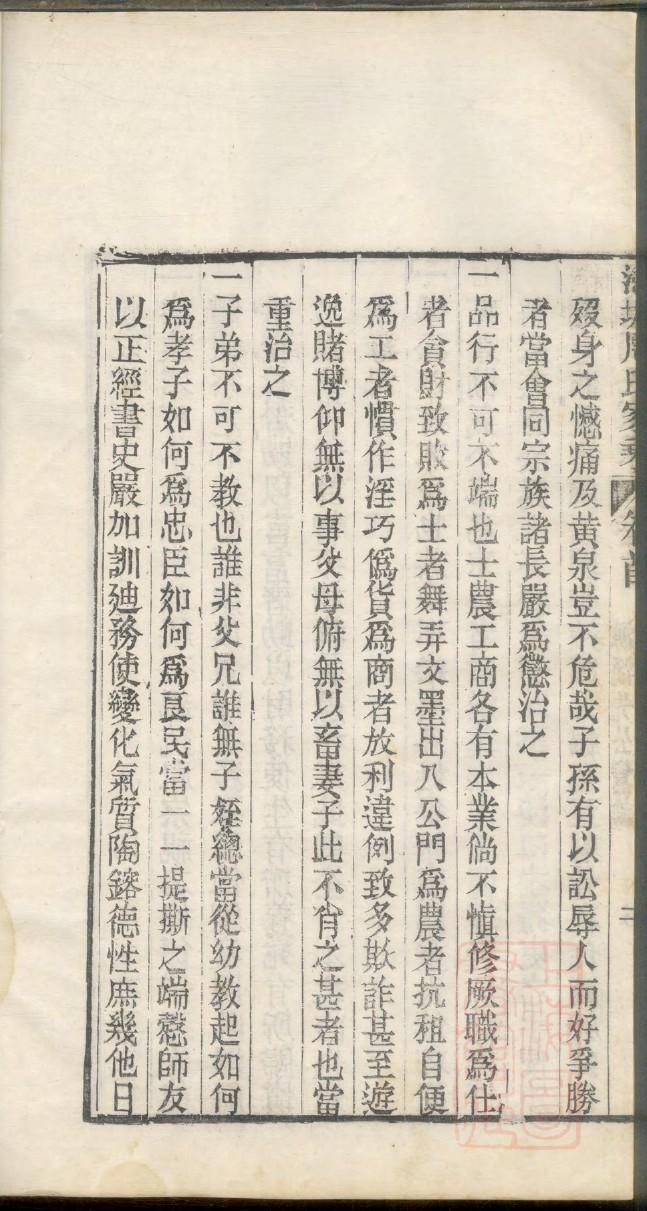 歿身之憾痛及黄泉豈不危哉子孫有以訟辱人而好爭勝
者當會同宗族諸長嚴爲懲治之
一品行不可不端也士農工商各有本業倘不愼修厥職爲仕
者貪財致敗爲士者舞弄文墨出入公門爲農者抗租自便
爲工者慣作淫巧僞貨爲商者放利違例致多欺詐甚至遊
逸賭博仰無以事父母俯無以畜妻子此不肖之甚者也當
重治之
一子弟不可不教也誰非父兄誰無子姪總當從幼教起如何
爲孝子如何爲忠臣如何爲良民當一一提撕之端慤師友
以正經書史嚴加訓廸務使變化氣質陶鎔德性庶幾他日